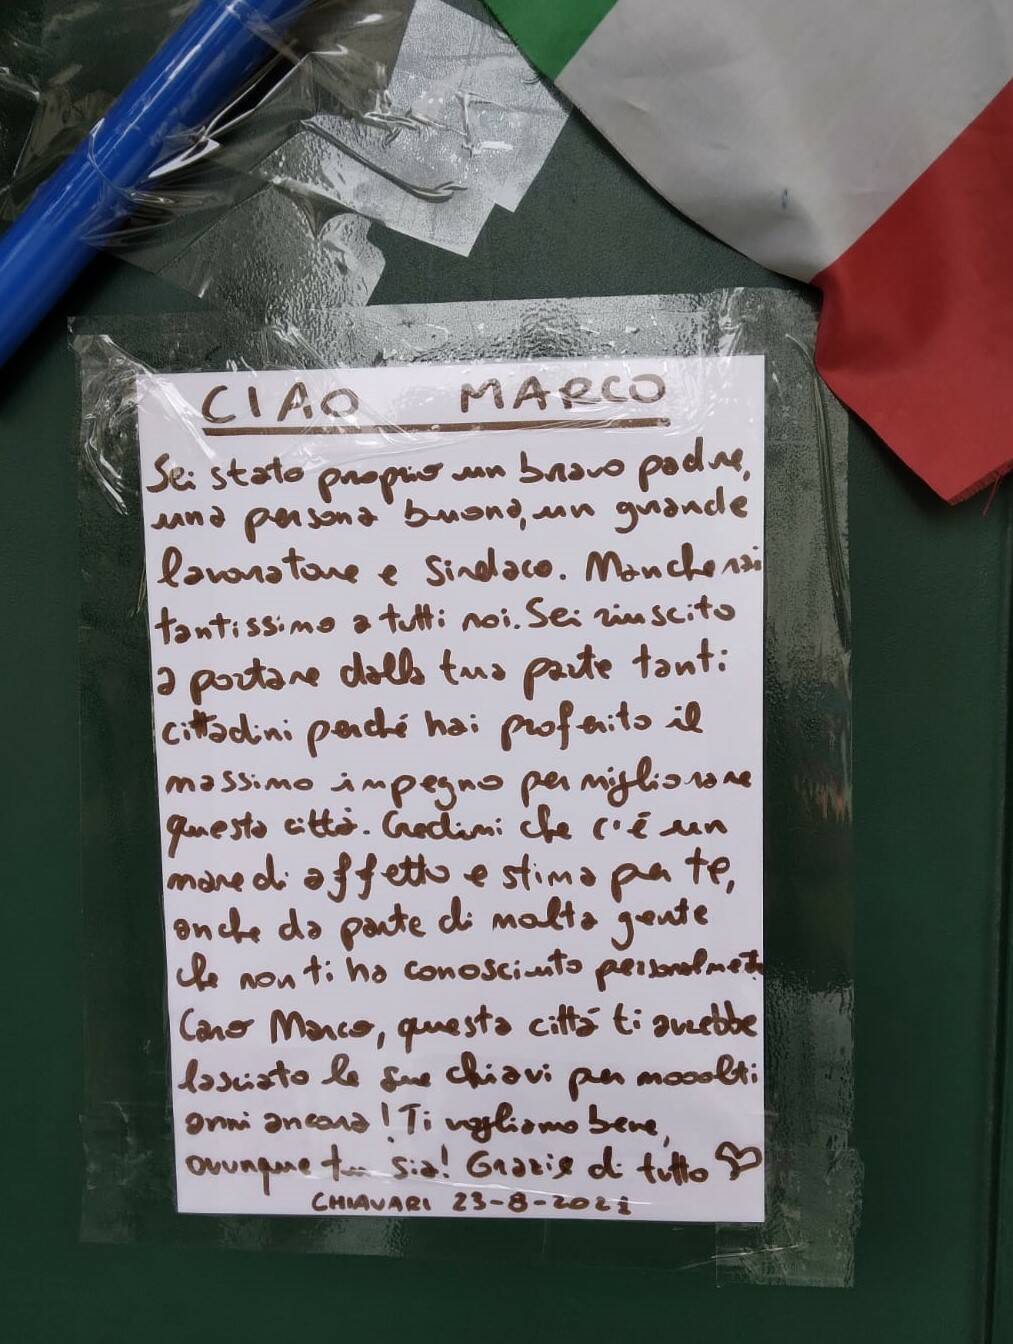 CIAO MARCO
Sei stato proprio un bravo padre,
una persona buona, un grande
lavoratore e sindaco. Mancherai
tantissimo a tutti noi. Sei riuscito
a portare dalla tua parte tanti
cittadini perché hai proferito il
massimo impegno per migliorare
questa città. Credimi che c'é un
mare di affetto e stima per te,
anche da parte di molta gente
che non ti ha conosciuto personalmente
Caro Marco, questa città ti avrebbe
lasciato le sue chiavi per mooolti
anni ancora! Ti vogliamo bene,
ovunque tu sia! Grazie di tutto ♡
CHIAVARI 23-8-2021